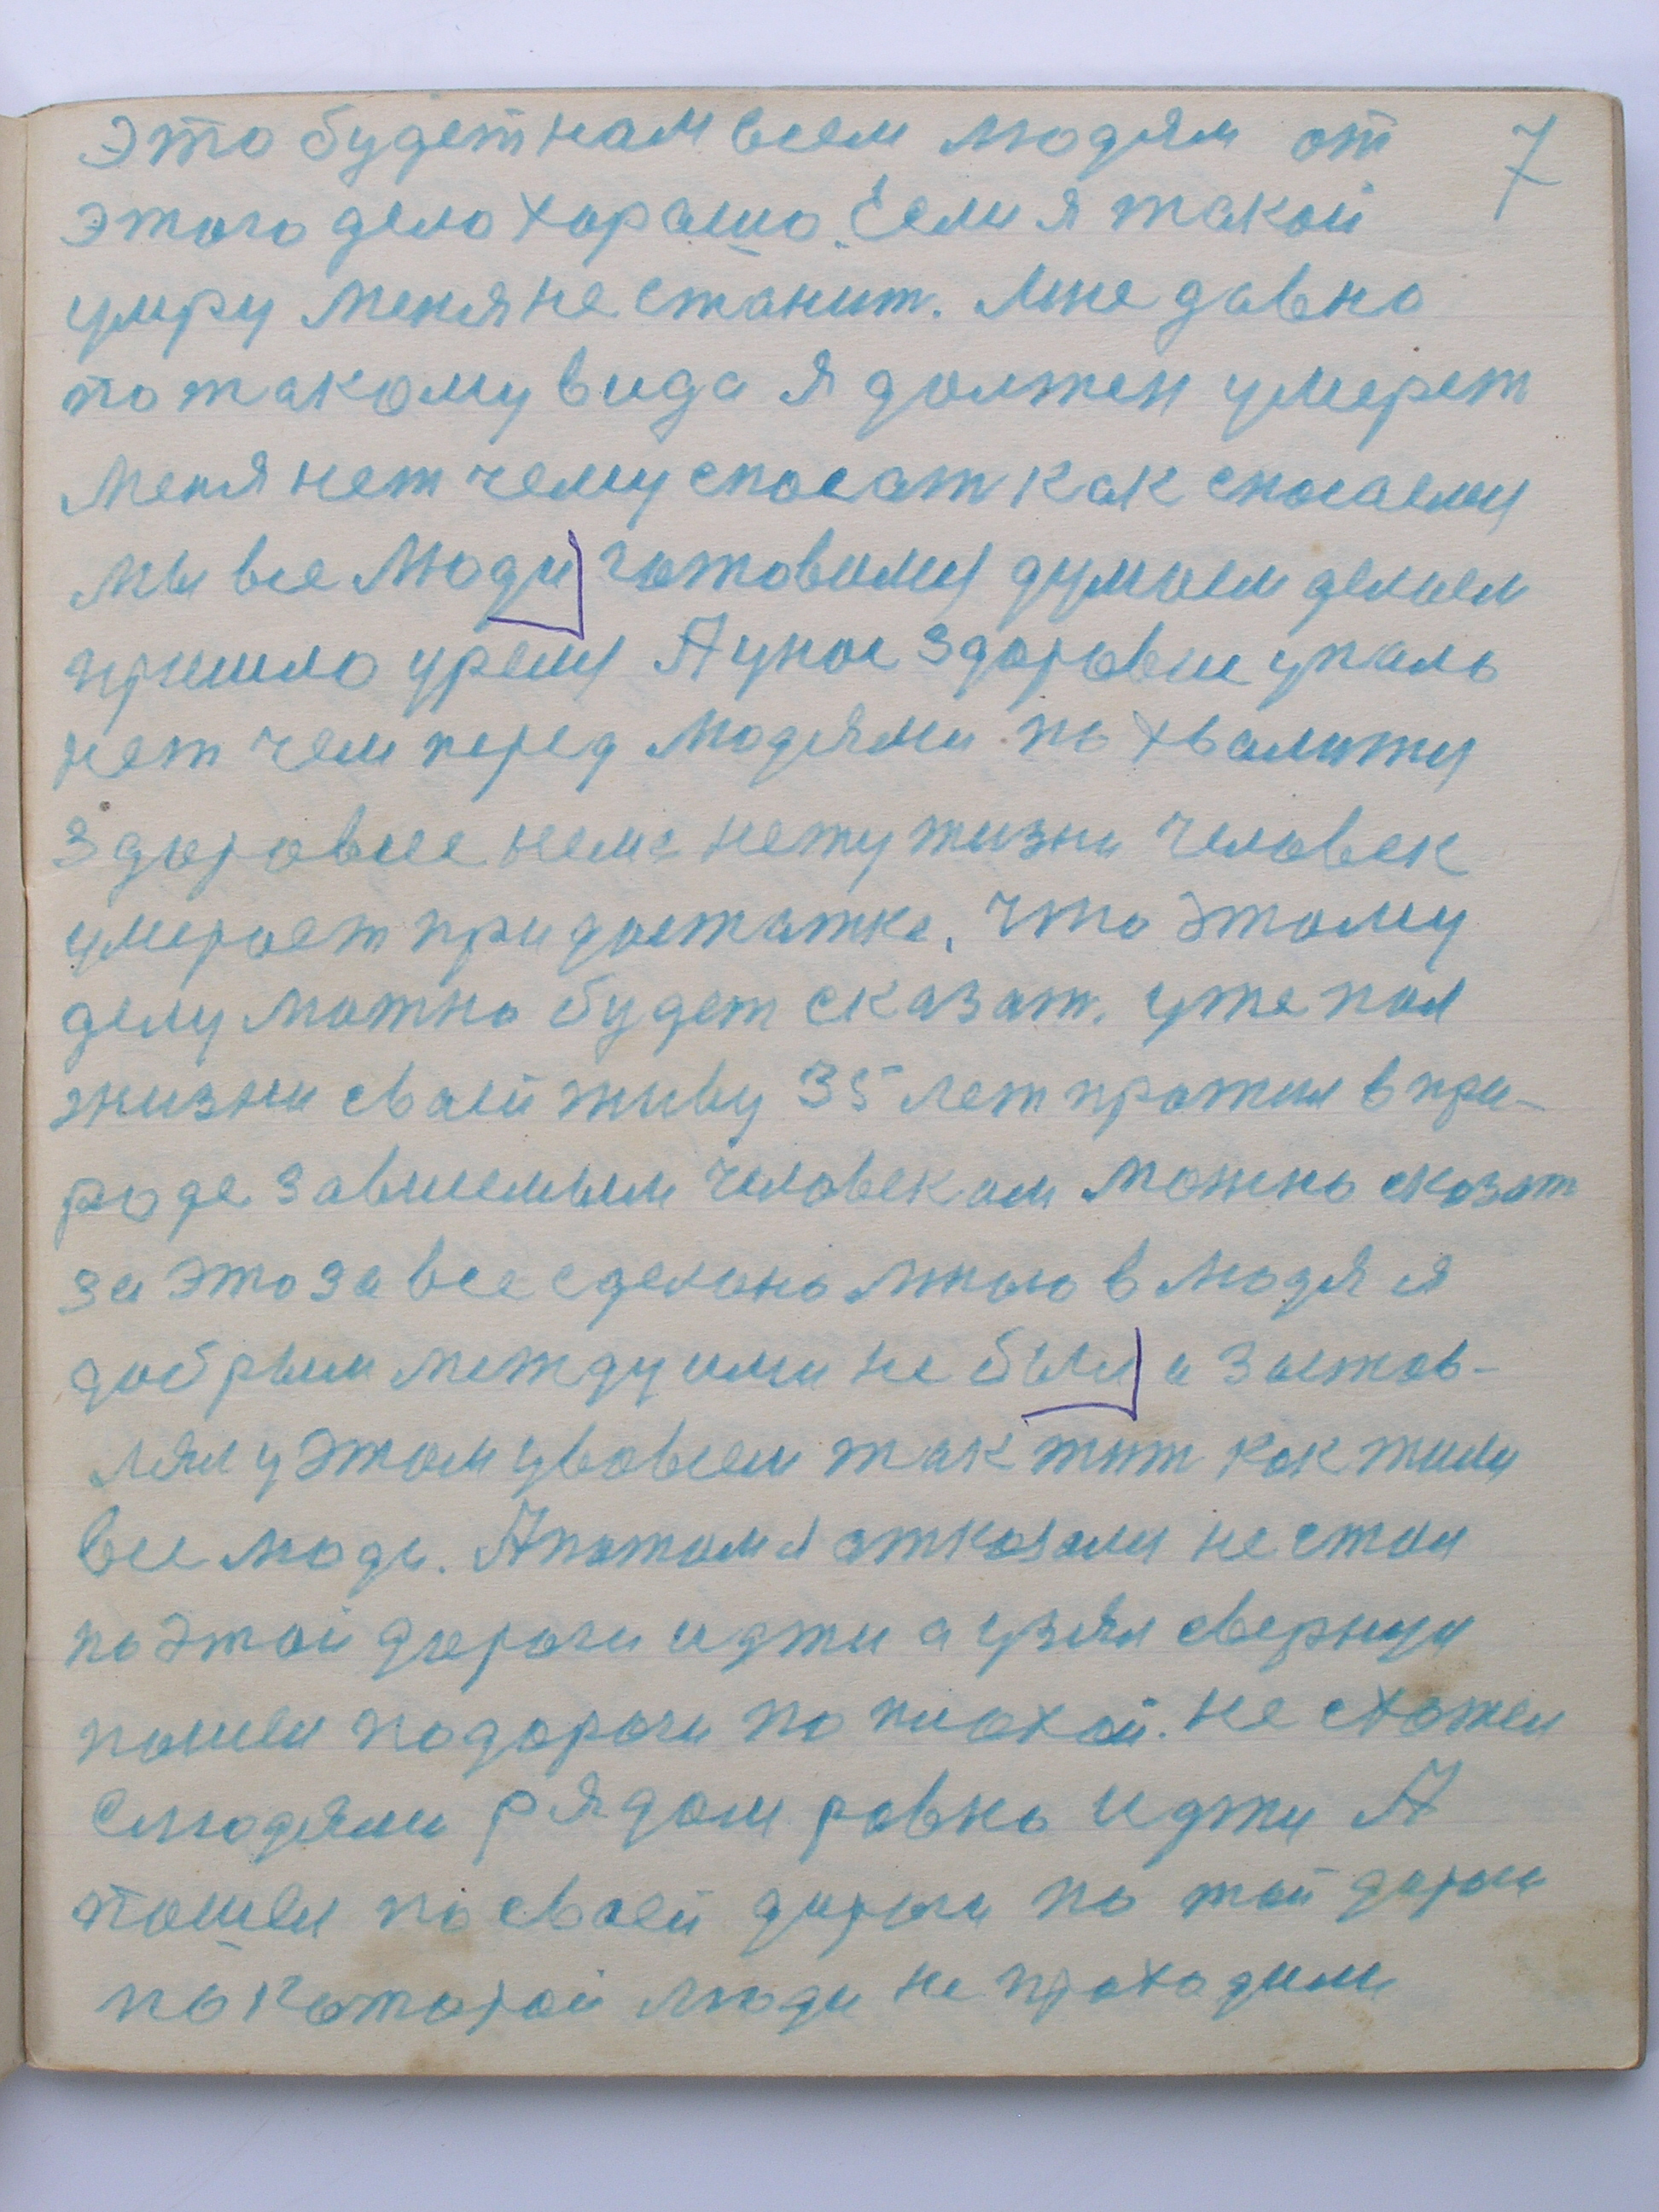 это будет нам всем людям от 7
этого дело харашо. Если я такой
умру меня не станит. Мне давно
по такому вида я должен умерет
меня нет чему спосат как спосаемы
мы все люди готовимы думаем делаем
пришло уремы А у нас здоровеи упаль
нет чем перед людями похвалиты
здоровее неме нету жизни человек
умерает при достатке. что этому
делу можно будет сказат. уже пол
жизни своей живу 35 лет прожил в при-
роде зависемым человекам можно сказат
за это за все сделано мною в людя я
добрым между ими не был а застов-
лял у этом увовсем так жит как жили
все люди. А потом я отказалы не стал
по этой дороги идти а узял свернул
пошел по дороги по плохой. не схожел
с людями рядом равно идти А
пошел по своей дороги по той дороги
по которой люди не проходили